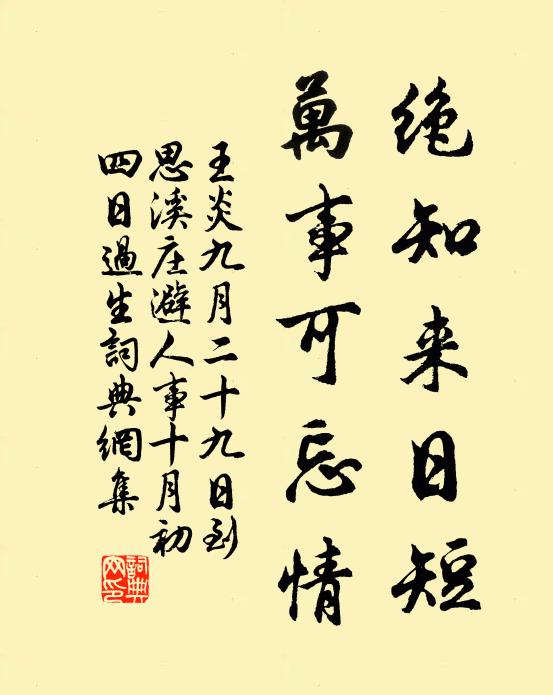 绝知来日短
萬事可忘情
王炎九月二十九日到
思溪庄避人事十月初
四日過生詞典網集
詞典
网印